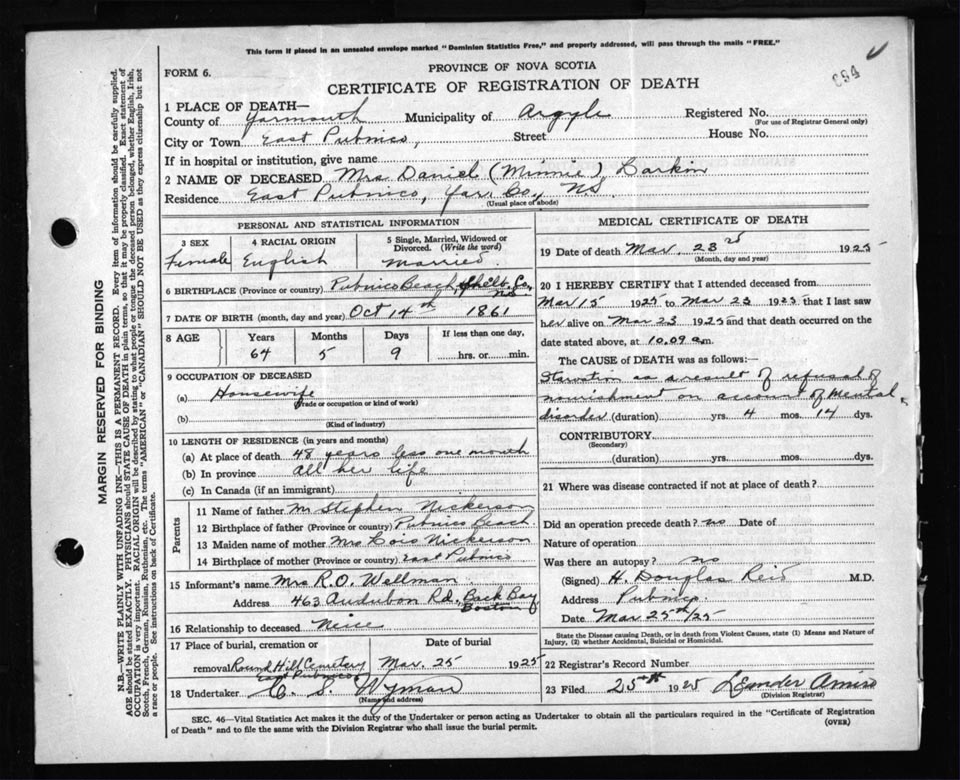 This form if placed in an unsealed envelope marked "Dominion Statistics Free," and properly addressed, will pass through the mails "FREE."
FORM 6.
PROVINCE OF NOVA SCOTIA
CERTIFICATE OF REGISTRATION OF DEATH
1 PLACE OF DEATH—
County of Yarmouth Municipality of Argyle Registered No.
(For use of Registrar General only)
City or Town East Pubnico, Street House No.
If in hospital or institution, give name
2 NAME OF DECEASED Mrs Daniel (Minnie) Larkin
Residence East Pubnico, Yar. Co., NS.
(Usual place of abode)
PERSONAL AND STATISTICAL INFORMATION
3 SEX Female
4 RACIAL ORIGIN English
5 Single, Married, Widowed or Divorced. (Write the word) Married.
6 BIRTHPLACE (Province or country) Pubnico Beach, Shelb. Co, N.S.
7 DATE OF BIRTH (month, day and year) Oct 14th 1861
8 AGE Years 64 Months 5 Days 9 If less than one day, hrs. or min.
9 OCCUPATION OF DECEASED
(a) Housewife
(Trade or occupation or kind of work)
(b)
(Kind of industry)
10 LENGTH OF RESIDENCE (in years and months)
(a) At place of death 48 years less one month
(b) In province all her life
(c) In Canada (if an immigrant)
Parents
11 Name of father M Stephen Nickerson
12 Birthplace of father (Province or country) Pubnico Beach
13 Maiden name of mother Mrs Lois Nickerson
14 Birthplace of mother (Province or country) East Pubnico
15 Informant's name Mrs R.O. Wellman
Address 463 Audubon Rd, Back Bay
Boston
16 Relationship to deceased Neice
17 Place of burial, cremation or removal Round Hill Cemetery East Pubnico
Date of burial Mar. 25 1925
18 Undertaker C. S. Wyman
(Name and address)
MEDICAL CERTIFICATE OF DEATH
19 Date of death Mar. 23rd 1925
(Month, day and year)
20 I HEREBY CERTIFY that I attended deceased from
Mar 15 1925 to Mar 23 1925 that I last saw
her alive on Mar 23 1925 and that death occurred on the
date stated above, at 10.09 a.m.
The CAUSE OF DEATH was as follows:—
Starvation as a result of refusal of
nourishment on account of Mental
disorder (duration) yrs. 4 mos. 14 dys.
CONTRIBUTORY
(Secondary)
(duration) yrs. mos. dys.
21 Where was disease contracted if not at place of death?
Did an operation precede death? no Date of
Nature of operation
Was there an autopsy? no
(Signed) H. Douglas Reid M.D.
Address Pubnico
Date Mar 25th/25
State the Disease causing Death, or in death from Violent Causes, state (1) Means and Nature of
Injury, (2) whether Accidental, Suicidal or Homicidal.
22 Registrar's Record Number
23 Filed 25th 1925 Leander Amiro
(Division Registrar)
SEC. 46—Vital Statistics Act makes it the duty of the Undertaker or person acting as Undertaker to obtain all the particulars required in the "Certificate of Registration
of Death" and to file the same with the Division Registrar who shall issue the burial permit.
(OVER)
MARGIN RESERVED FOR BINDING
N.B.—WRITE PLAINLY WITH UNFADING INK—THIS IS A PERMANENT RECORD. Every item of information should be carefully supplied.
AGE should be stated EXACTLY. PHYSICIANS should STATE CAUSE OF DEATH in plain terms, so that it may be properly classified. Exact statement of
OCCUPATION is very important. RACIAL ORIGIN will be described by stating to what people or tongue the deceased person belonged, whether English, Irish,
Scotch, French, German, Russian, Ruthenian, etc. The terms "AMERICAN" or "CANADIAN" SHOULD NOT BE USED as they express citizenship but not
a race or people. See instructions on back of Certificate.